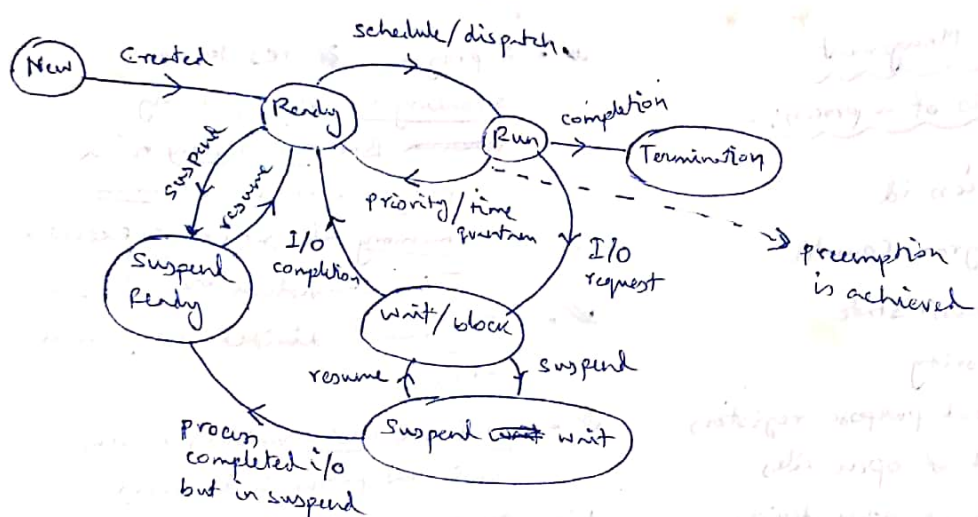 schedule/dispatch.
New
Created
Ready
Run
completion
Termination
suspend
resume
priority/time
quantum
I/O
completion
I/O
request
preemption
is achieved
Suspend
Ready
wait/block
resume
suspend
Suspend wait
process
completed i/o
but in suspend